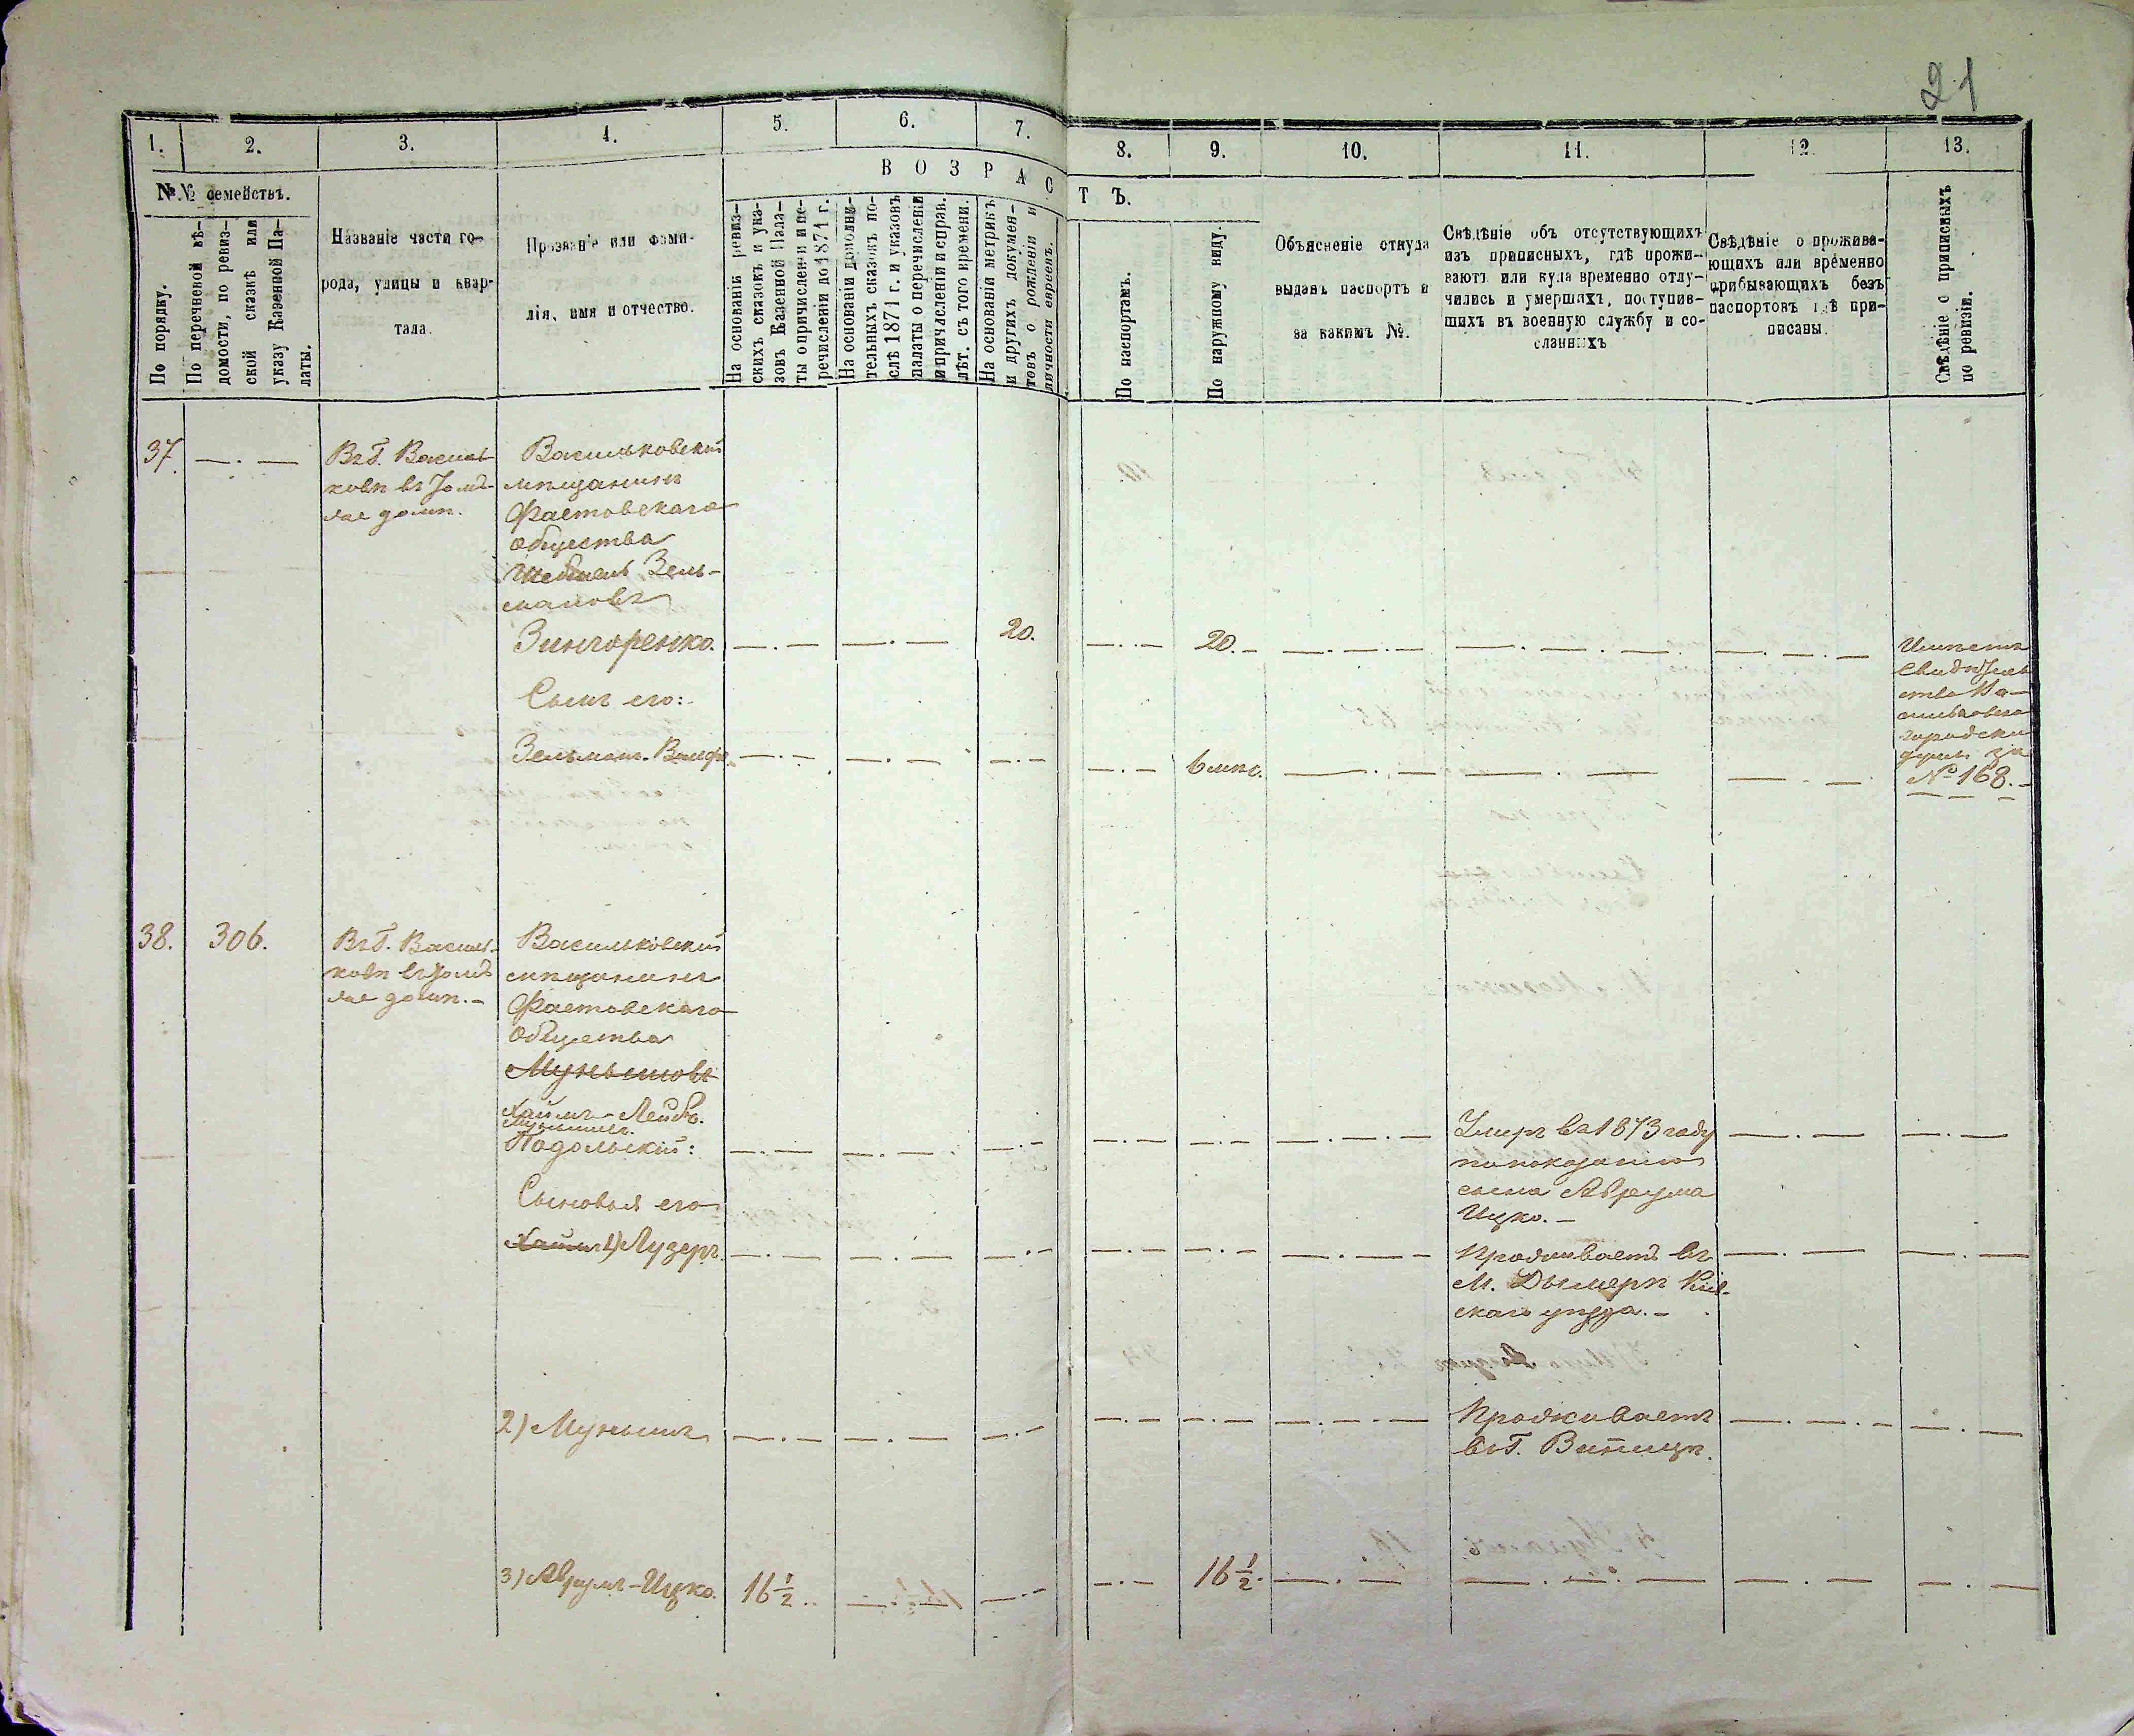 21
1. 2. 3. 4. 5. 6. 7. 8. 9. 10. 11. 12. 13.
№№ семействъ.
По порядку.
По перечневой вѣ-
домости, по ревиз-
ской сказкѣ или
указу Казенной Па-
латы.
Названіе части го-
рода, улицы и квар-
тала.
Прозваніе или фами-
лія, имя и отчество.
ВОЗРАСТЪ.
На основаніи ревиз-
скихъ сказокъ и ука-
зовъ Казенной Пала-
ты о причисленіи и пе-
речисленіи до 1871 г.
На основаніи дополни-
тельныхъ сказокъ по-
слѣ 1871 г. и указовъ
палаты о перечисленіи
и причисленіи и справ.
лѣт. съ того времени.
На основаніи метрикъ
и другихъ докумен-
товъ о рожденіи и
личности евреевъ.
По паспортамъ.
По наружному виду.
Объясненіе откуда
выданъ паспортъ и
за какимъ №.
Свѣдѣніе объ отсутствующихъ
изъ приписныхъ, гдѣ прожи-
ваютъ или куда временно отлу-
чились и умершихъ, поступив-
шихъ въ военную службу и со-
сланныхъ
Свѣдѣніе о прожива-
ющихъ или временно
прибывающихъ безъ
паспортовъ гдѣ при-
писаны.
Свѣдѣніе о приписныхъ
по ревизіи.
37.
Въ Г. Василь-
ковѣ въ
домѣ.
Васильковскій
мѣщанинъ
Фастовскаго
общества
Зель-
мановъ
Зингоренко.
20.
20.
Имѣетъ
свидѣтель
ство Ва-
сильковско
городск
за
№ 168.
Сынъ его:
Зельманъ-Вольфъ
6 мѣс.
38.
306.
Въ Г. Василь-
ковѣ въ
домѣ.
Васильковскій
мѣщанинъ
Фастовскаго
общества
Муньшовъ
Хаимъ-Лейбъ
Подольскій:
Умеръ въ 1873 году
по показанію
сына Аврума
Ицко.
Сыновья его
Хаимъ 1) Лузеръ
Проживаетъ въ
М. Дымерѣ Кіев-
скаго уѣзда.
2) Муньшъ
Проживаетъ
въ Г. Виницѣ.
3) Аврумъ-Ицко.
16 1/2
16 1/2.